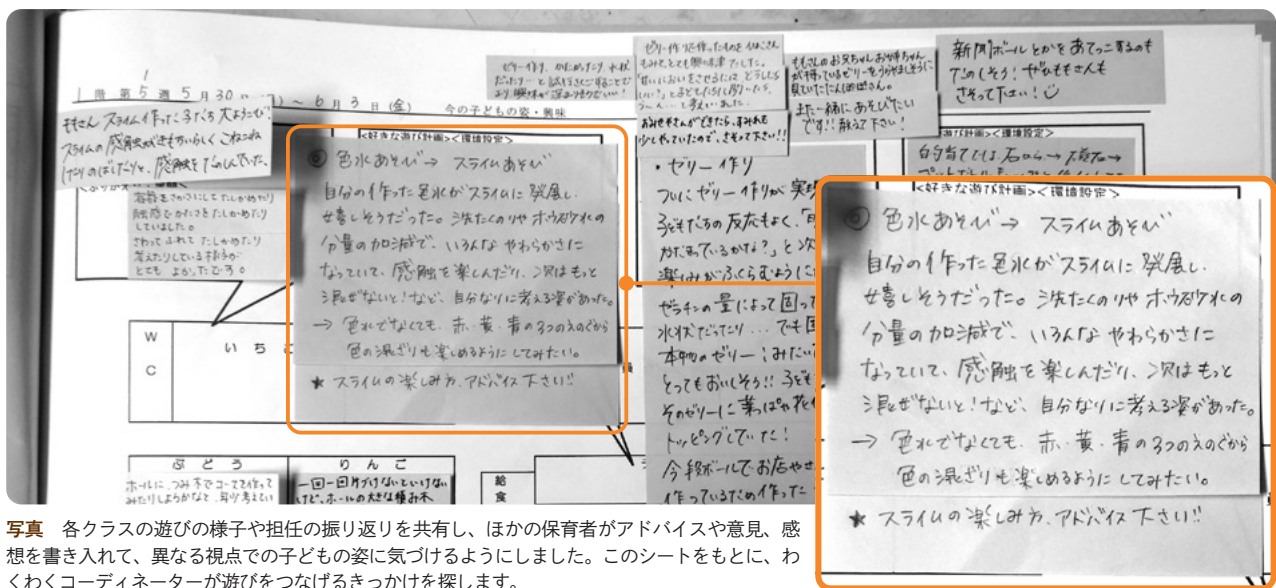 1階 第5週 5月30日 ~ 6月3日(金)
今の子どもの姿・興味
ももさん スライム作って 子どもたち 大よろこび!
スライムの感触
感触をたのしんでいた。
容器をさかさにして たしかめたり
触感と かたさを たしかめたり
していました。
さわって ふれて たしかめたり
考えたりしている様子が
とても よかったです。
ゼリー作り、かためたり、水状
だったり…と試行さくごすることで
より興味が深まりそうですね!
もみて、とても興味津津でした。
おみせやさんができたら、すみれも
少しやっていたので、さそって下さい!!
ももさんのお兄ちゃんお姉ちゃん
が持っているゼリーをうらやましそうに
見ていたたんぽぽさん。
また一緒にあそびたい
です!! 教えて下さい!
新聞ボールとかをあてっこするのも
たのしそう! ぜひももさんも
さそって下さい!
<好きな遊び計画><環境設定>
◎ 色水あそび→ スライムあそび
自分の作った色水がスライムに発展し、
嬉しそうだった。洗たくのりやホウ砂水の
分量の加減で、いろんな やわらかさに
なっていて、感触を楽しんだり、次はもっと
混ぜないと!など、自分なりに考える姿があった。
→ 色水でなくても、赤・黄・青の3つのえのぐから
色の混ざりも楽しめるようにしてみたい。
★ スライムの楽しみ方、アドバイス下さい!!
・ゼリー作り
ついにゼリー作りが実現
子どもたちの反応もよく、「
かたまっているかな?」と次
楽しみがふくらむように
ゼラチンの量によって固って
水状だったり…でも
本物のゼリーみたい
とってもおいしそう!! 子ども
そのゼリーに葉っぱや花
トッピングしていた!
今段ボールでお店やさ
作っているため作った
遊び計画><環境設定>
WC
いちご
ぶどう
りんご
給食
ホールに、つみ木でコースを作って
みたりしようかなと
一回一回片づけないといけない
けど、ホールの大きな積み木
<好きな遊び計画><環境設定>
◎ 色水あそび→ スライムあそび
自分の作った色水がスライムに発展し、
嬉しそうだった。洗たくのりやホウ砂水の
分量の加減で、いろんな やわらかさに
なっていて、感触を楽しんだり、次はもっと
混ぜないと!など、自分なりに考える姿があった。
→ 色水でなくても、赤・黄・青の3つのえのぐから
色の混ざりも楽しめるようにしてみたい。
★ スライムの楽しみ方、アドバイス下さい!!
写真 各クラスの遊びの様子や担任の振り返りを共有し、ほかの保育者がアドバイスや意見、感
想を書き入れて、異なる視点での子どもの姿に気づけるようにしました。このシートをもとに、わ
くわくコーディネーターが遊びをつなげるきっかけを探します。